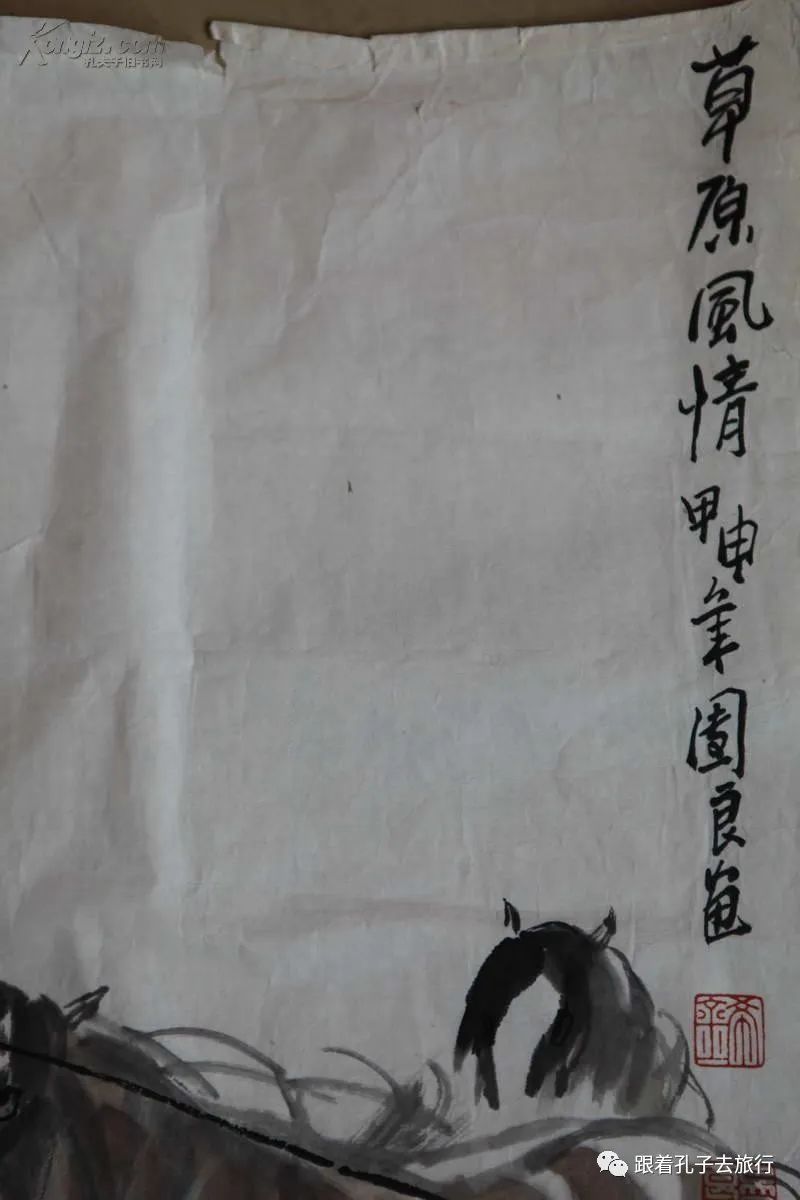 Kongfz.com
孔夫子旧书网
草原風情 甲申年 園良畫
跟着孔子去旅行